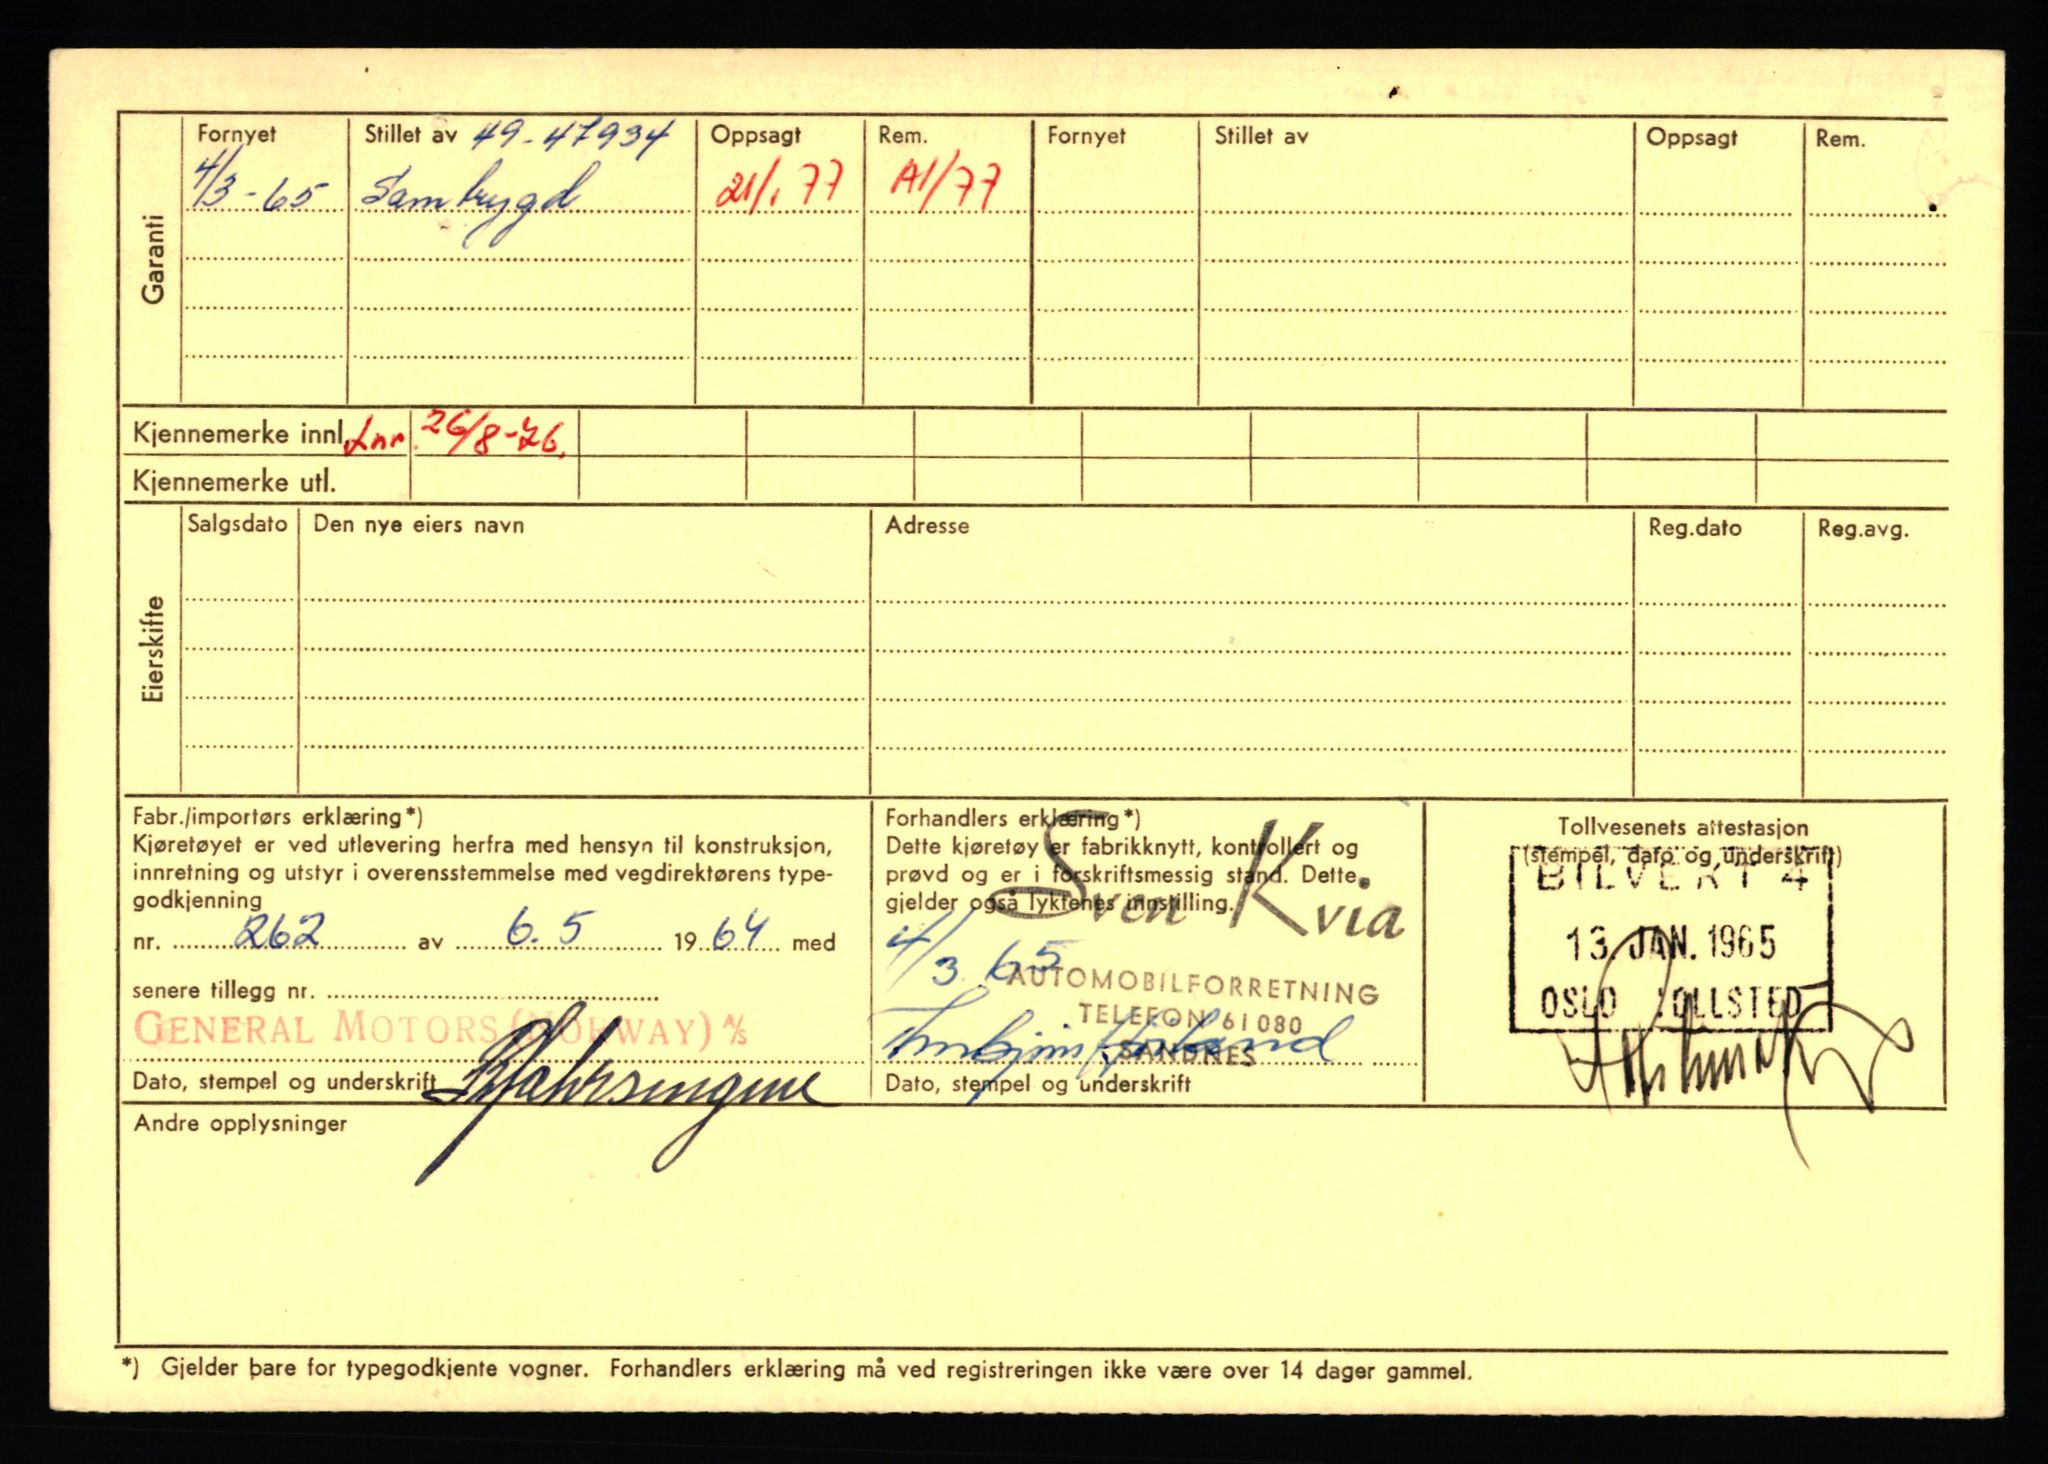 Garanti
Fornyet Stillet av 49-47934 Oppsagt Rem. Fornyet Stillet av Oppsagt Rem.
4/3-65 Sambrygd 21/1 77 A1/77
Kjennemerke innl. 26/8-76.
Kjennemerke utl.
Eierskifte
Salgsdato Den nye eiers navn Adresse Reg.dato Reg.avg.
Fabr./importørs erklæring*)
Kjøretøyet er ved utlevering herfra med hensyn til konstruksjon,
innretning og utstyr i overensstemmelse med vegdirektørens type-
godkjenning
nr. 262 av 6.5 1964 med
senere tillegg nr.
GENERAL MOTORS (NORWAY) A/S
Dato, stempel og underskrift
Forhandlers erklæring*)
Dette kjøretøy er fabrikknytt, kontrollert og
prøvd og er i forskriftsmessig stand. Dette
gjelder også lyktenes innstilling.
Sven Kvia
4/3 65
AUTOMOBILFORRETNING
TELEFON 61080
SANDNES
Dato, stempel og underskrift
Tollvesenets attestasjon
(stempel, dato og underskrift)
BILVERT 4
13. JAN. 1965
OSLO TOLLSTED
Andre opplysninger
*) Gjelder bare for typegodkjente vogner. Forhandlers erklæring må ved registreringen ikke være over 14 dager gammel.